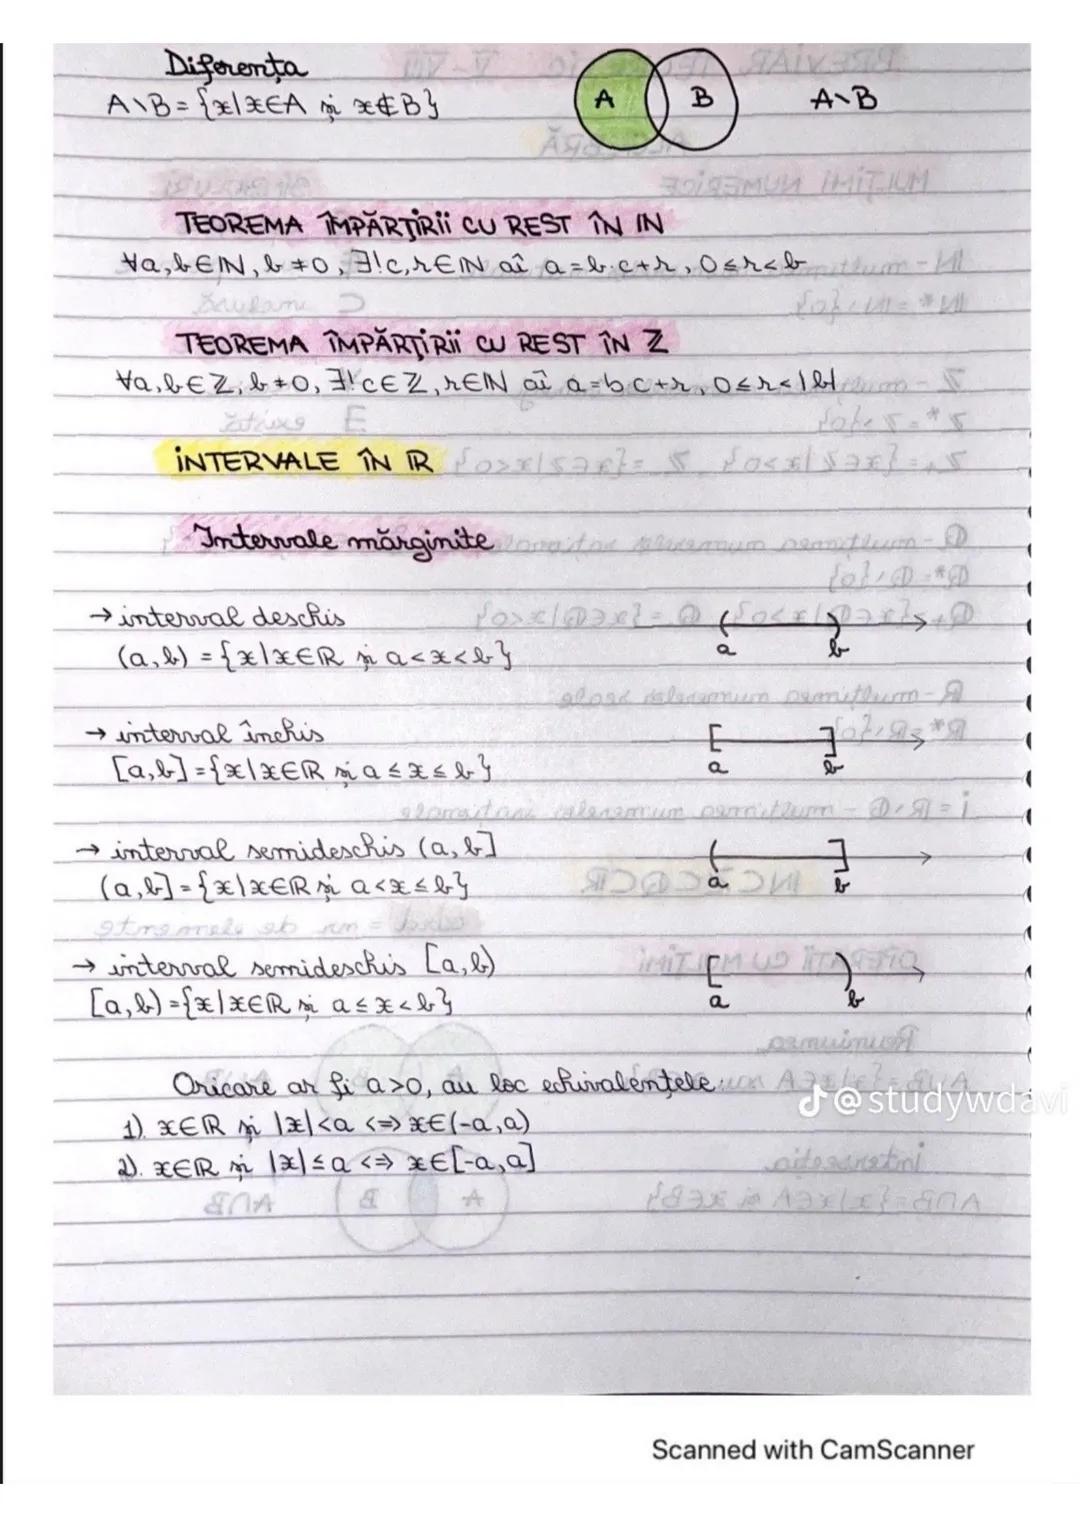 Diferența
A\B = {x|x∈A și x∉B}
A B A\B
TEOREMA ÎMPĂRȚIRII CU REST ÎN ℕ
∀a,b∈ℕ, b≠0, ∃!c,r∈ℕ aî a=b·c+r, 0≤r<b
TEOREMA ÎMPĂRȚIRII CU REST ÎN ℤ
∀a,b∈ℤ, b≠0, ∃!c∈ℤ, r∈ℕ aî a=bc+r, 0≤r<|b|
INTERVALE ÎN ℝ
Intervale mărginite
→ interval deschis
(a,b) = {x|x∈ℝ și a<x<b}
( )
a b
→ interval închis
[a,b] = {x|x∈ℝ și a≤x≤b}
[ ]
a b
→ interval semideschis (a,b]
(a,b] = {x|x∈ℝ și a<x≤b}
( ]
a b
→ interval semideschis [a,b)
[a,b) = {x|x∈ℝ și a≤x<b}
[ )
a b
Oricare ar fi a>0, au loc echivalențele:
1). x∈ℝ și |x|<a <=> x∈(-a,a)
2). x∈ℝ și |x|≤a <=> x∈[-a,a]
@studywdavi
Scanned with CamScanner